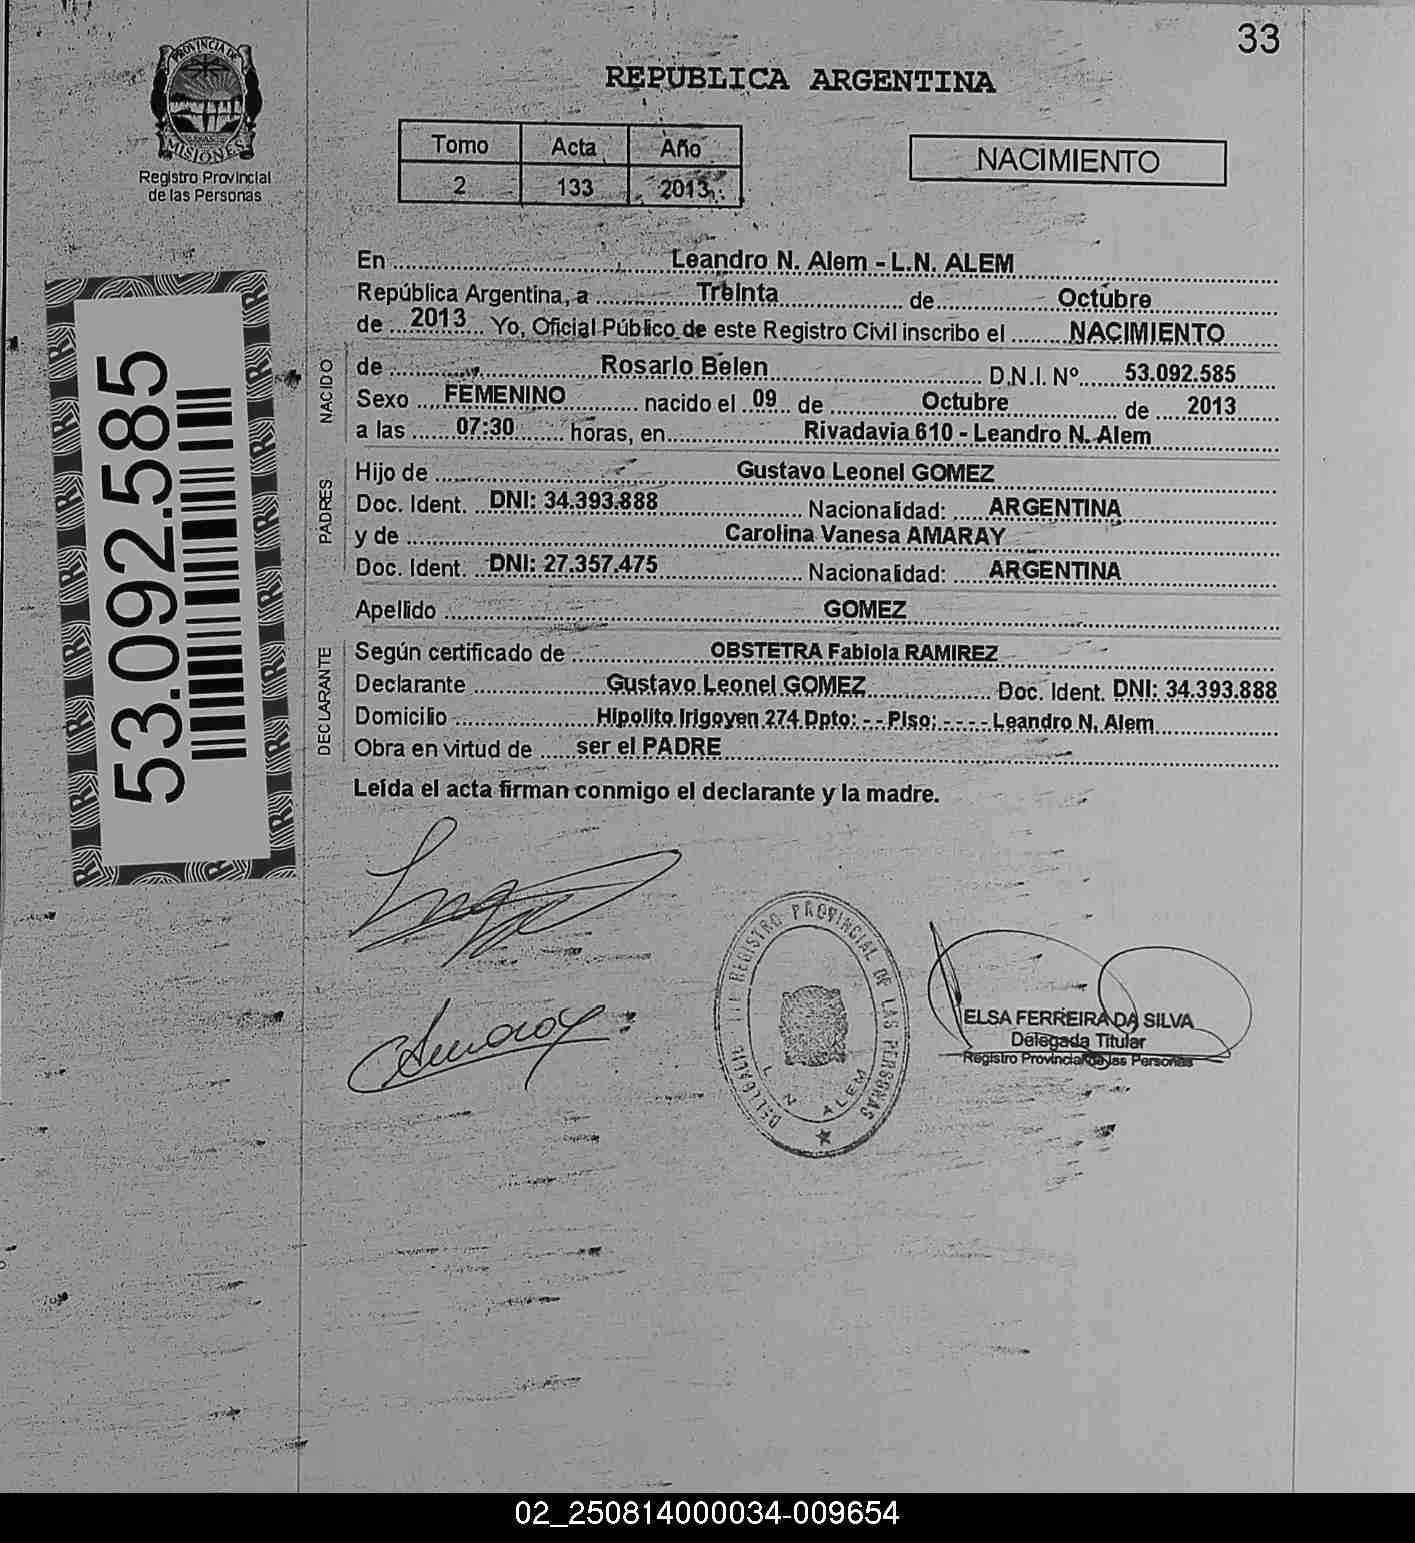 33
PROVINCIA DE
MISIONES
Registro Provincial
de las Personas
REPUBLICA ARGENTINA
Tomo Acta Año
2 133 2013
NACIMIENTO
53.092.585
En Leandro N. Alem - L.N. ALEM
República Argentina, a Treinta de Octubre
de 2013 Yo, Oficial Público de este Registro Civil inscribo el NACIMIENTO
NACIDO
de Rosario Belen D.N.I. Nº 53.092.585
Sexo FEMENINO nacido el 09 de Octubre de 2013
a las 07:30 horas, en Rivadavia 610 - Leandro N. Alem
PADRES
Hijo de Gustavo Leonel GOMEZ
Doc. Ident. DNI: 34.393.888 Nacionalidad: ARGENTINA
y de Carolina Vanesa AMARAY
Doc. Ident. DNI: 27.357.475 Nacionalidad: ARGENTINA
Apellido GOMEZ
DECLARANTE
Según certificado de OBSTETRA Fabiola RAMIREZ
Declarante Gustavo Leonel GOMEZ Doc. Ident. DNI: 34.393.888
Domicilio Hipolito Irigoyen 274 Dpto: - - Piso: - - - - Leandro N. Alem
Obra en virtud de ser el PADRE
Leída el acta firman conmigo el declarante y la madre.
REGISTRO PROVINCIAL DE LAS PERSONAS
L. N. ALEM
ELSA FERREIRA DA SILVA
Delegada Titular
Registro Provincial de las Personas
02_250814000034-009654